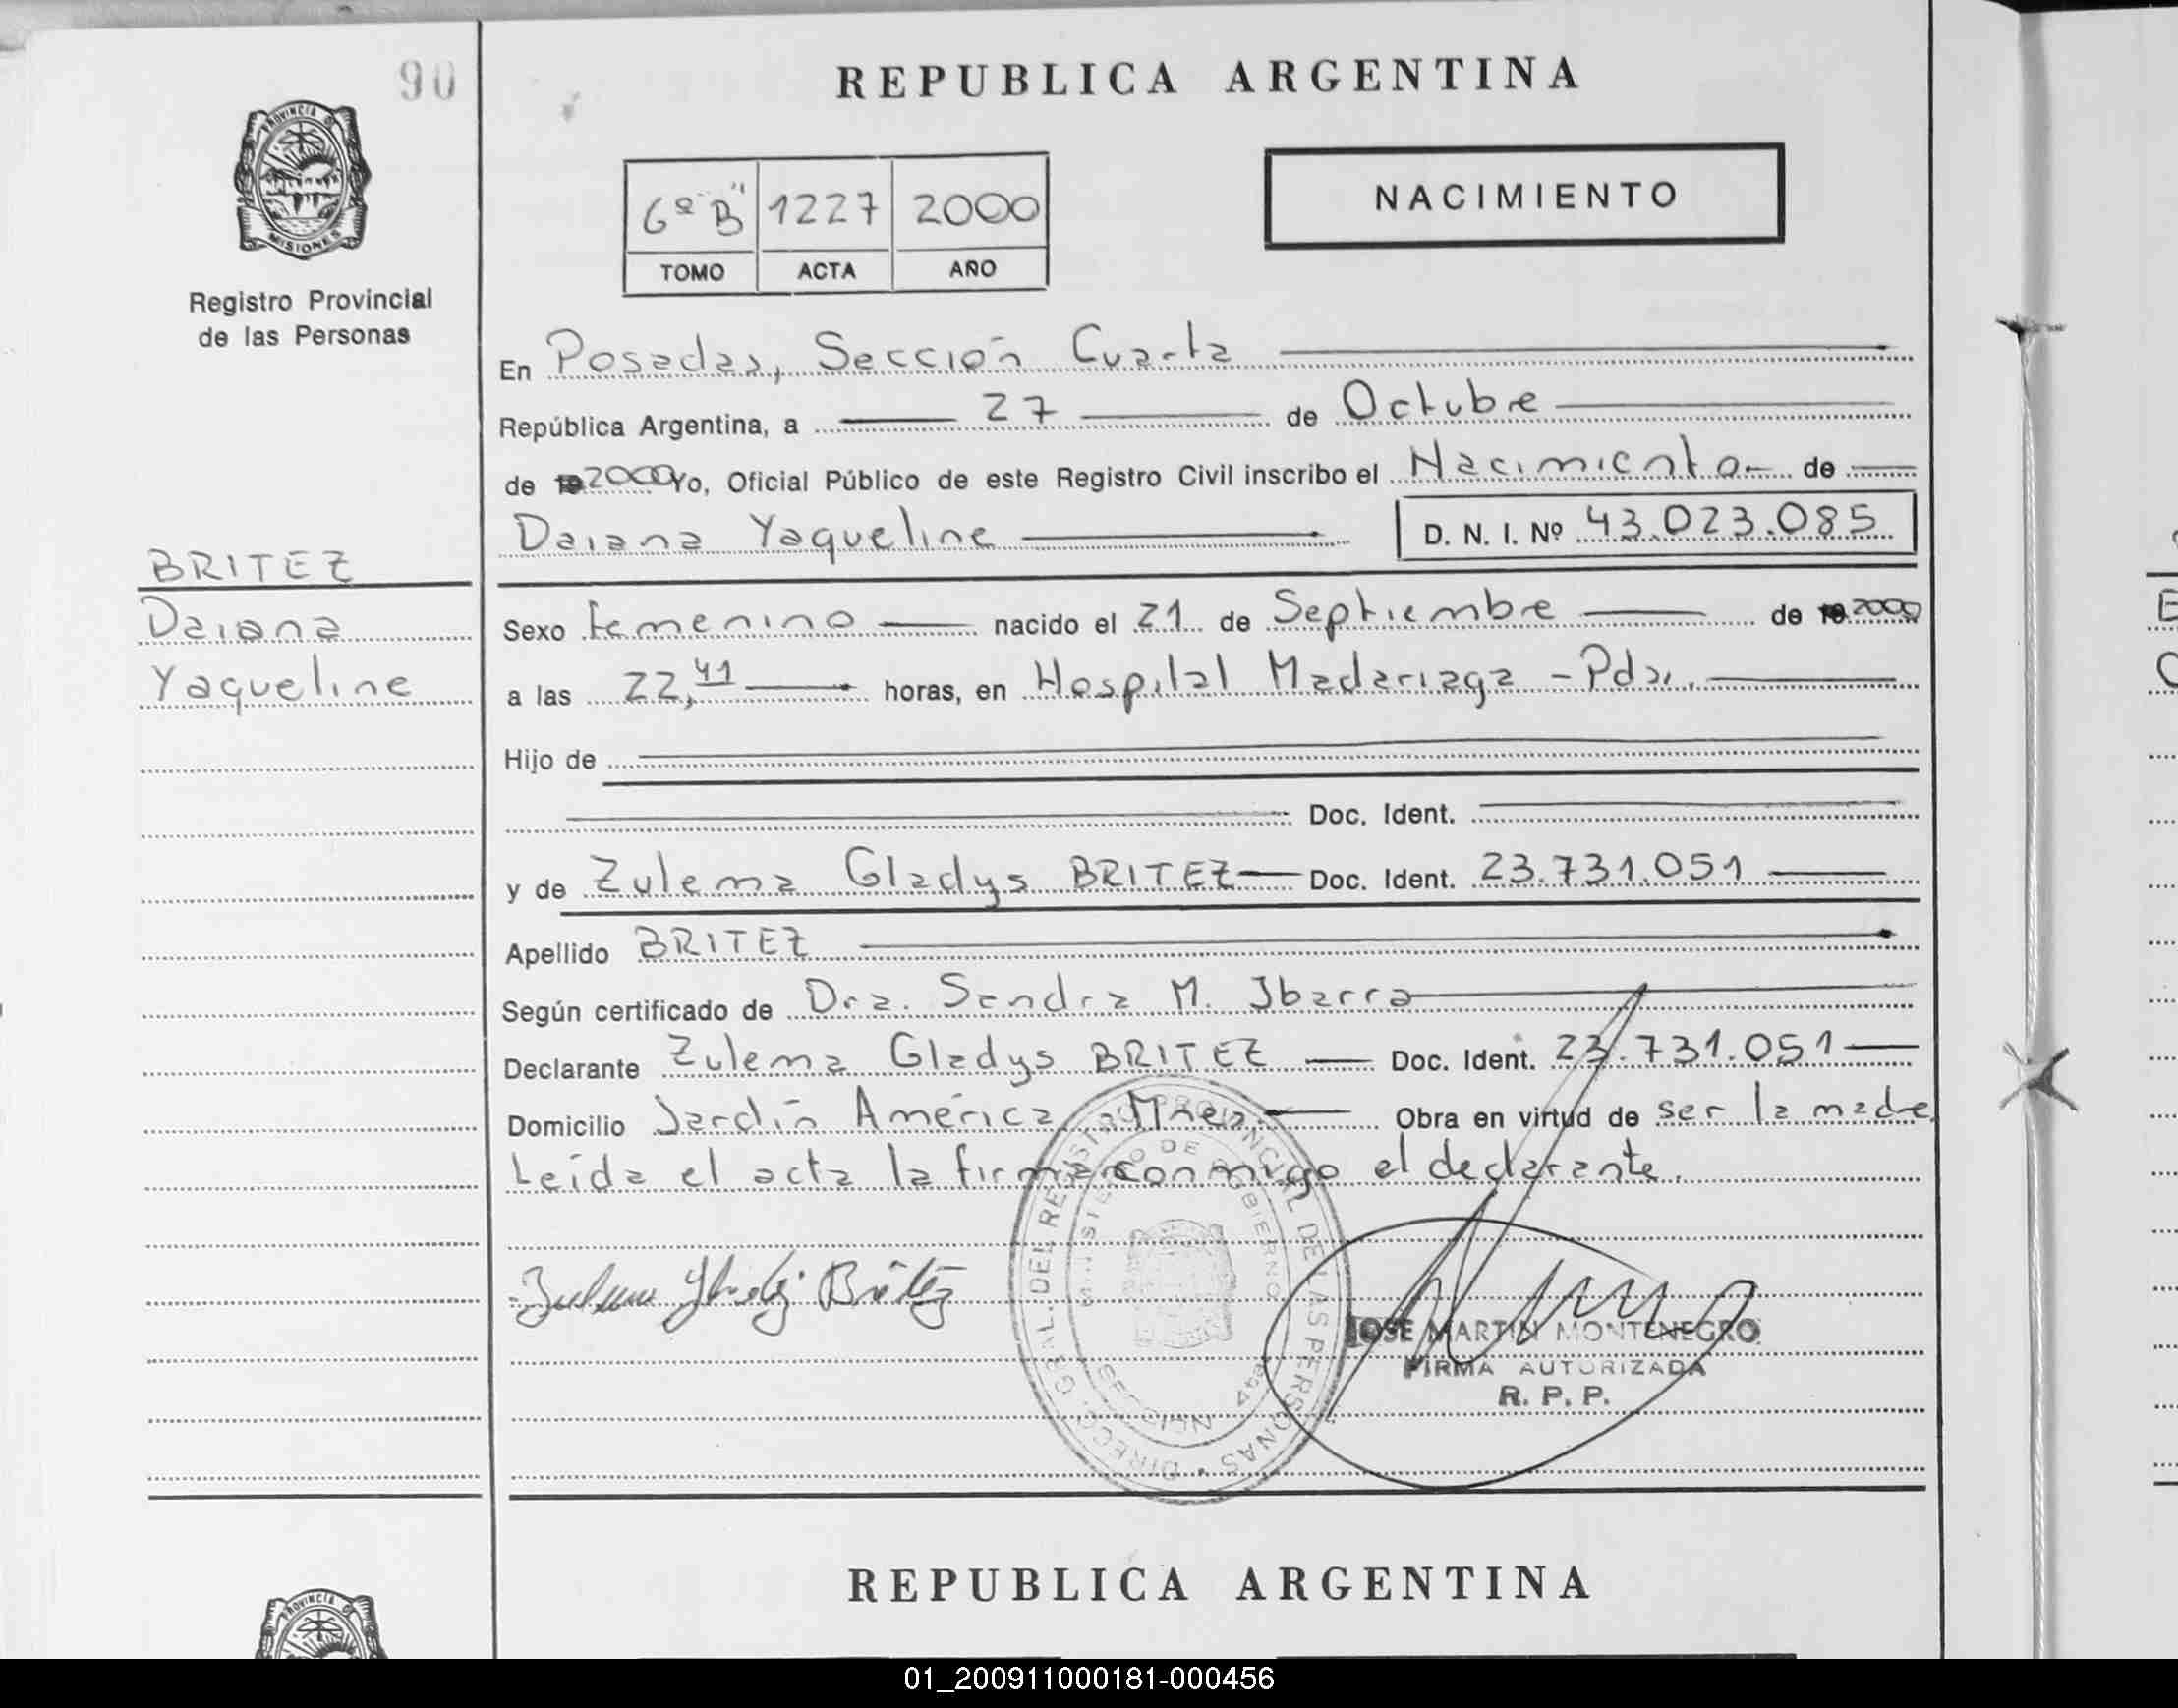 90
REPUBLICA ARGENTINA
PROVINCIA DE
MISIONES
Registro Provincial
de las Personas
6º "B" 1227 2000
TOMO ACTA AÑO
NACIMIENTO
En Posadas, Sección Cuarta
República Argentina, a 27 de Octubre
de 19 2000 Yo, Oficial Público de este Registro Civil inscribo el Nacimiento de
Daiana Yaqueline D. N. I. Nº 43.023.085
BRITEZ
Daiana
Yaqueline
Sexo femenino nacido el 21 de Septiembre de 19 2000
a las 22,41 horas, en Hospital Madariaga - Pdas.
Hijo de
Doc. Ident.
y de Zulema Gladys BRITEZ Doc. Ident. 23.731.051
Apellido BRITEZ
Según certificado de Dra. Sandra M. Ibarra
Declarante Zulema Gladys BRITEZ Doc. Ident. 23.731.051
Domicilio Jardín América, Mnes. Obra en virtud de ser la madre
Leída el acta la firma conmigo el declarante.
Zulema Gladys Britez
DIRECC. GRAL. DEL REGISTRO PROVINCIAL DE LAS PERSONAS
MINISTERIO DE GOBIERNO
SECCION 4ta
JOSE MARTIN MONTENEGRO
FIRMA AUTORIZADA
R. P. P.
REPUBLICA ARGENTINA
PROVINCIA DE
01_200911000181-000456